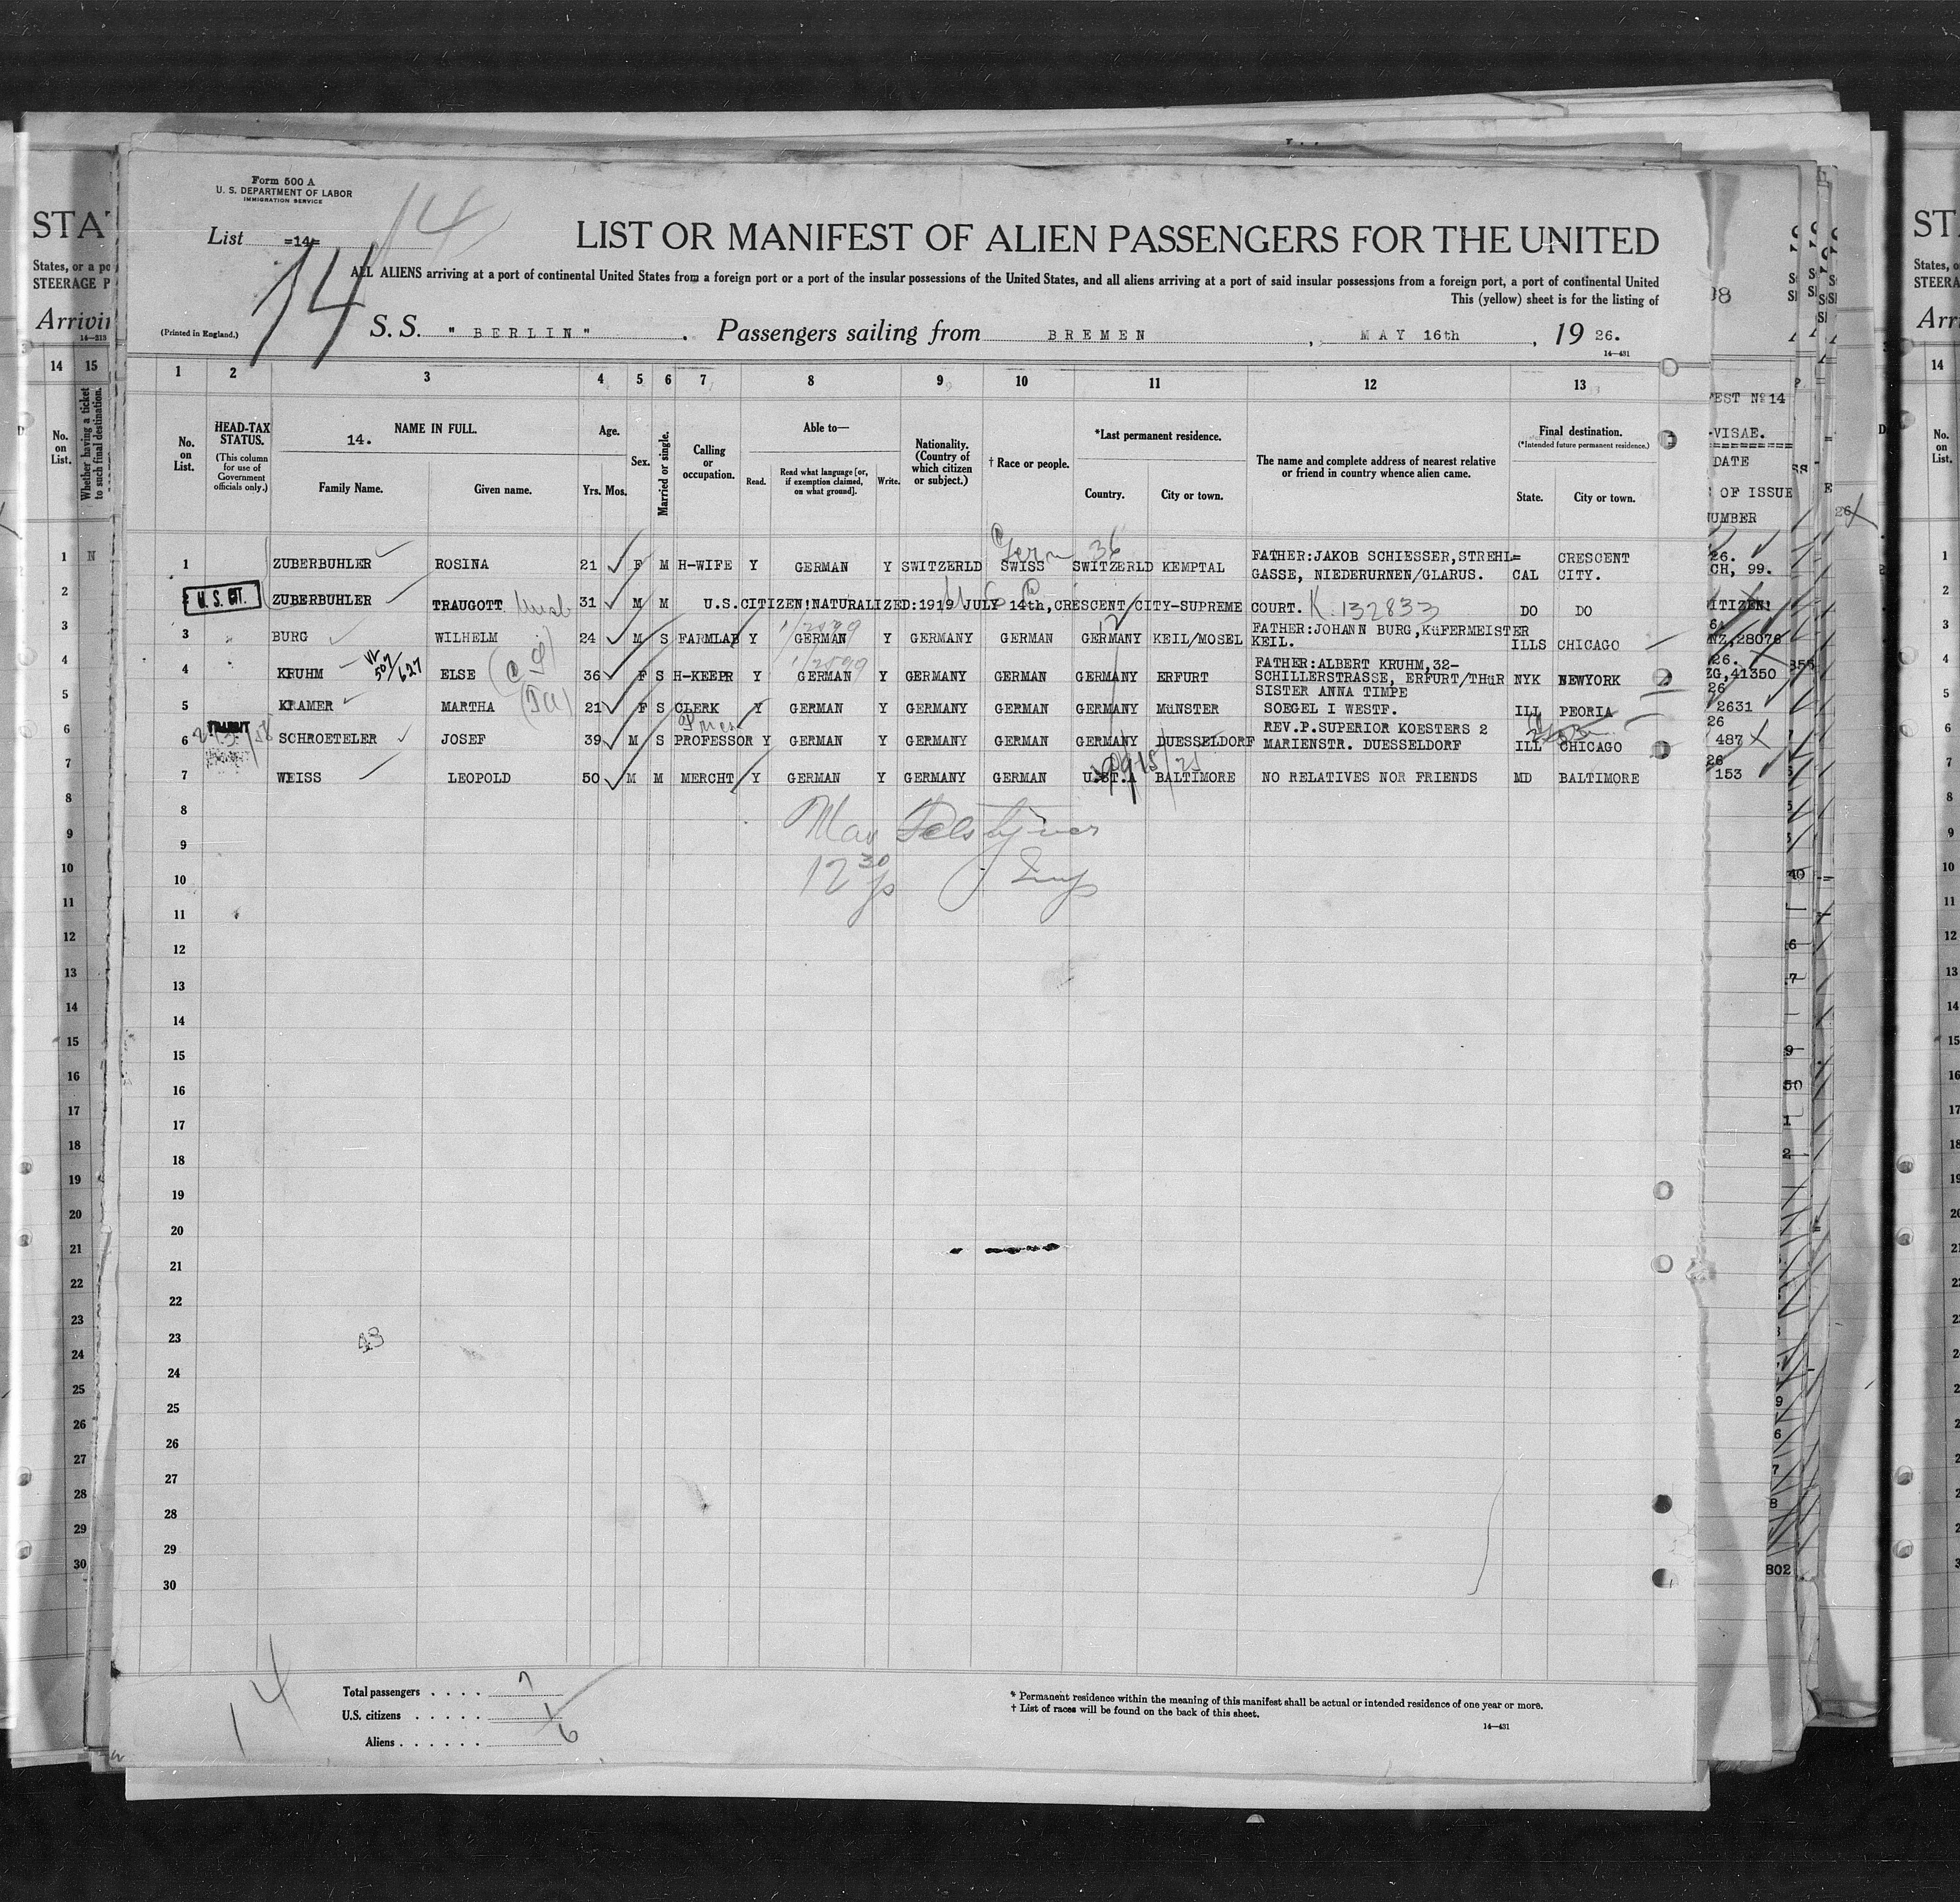 Form 500 A
U. S. DEPARTMENT OF LABOR
IMMIGRATION SERVICE
14
List =14=
14
LIST OR MANIFEST OF ALIEN PASSENGERS FOR THE UNITED
ALL ALIENS arriving at a port of continental United States from a foreign port or a port of the insular possessions of the United States, and all aliens arriving at a port of said insular possessions from a foreign port, a port of continental United
This (yellow) sheet is for the listing of
(Printed in England.)
S.S. "BERLIN". Passengers sailing from BREMEN, MAY 16th, 19 26.
14—431
1 2 3 4 5 6 7 8 9 10 11 12 13
No. on List.
HEAD-TAX STATUS.
(This column for use of Government officials only.)
14. NAME IN FULL.
Family Name. Given name.
Age.
Yrs. Mos.
Sex.
Married or single.
Calling or occupation.
Able to—
Read. Read what language [or, if exemption claimed, on what ground]. Write.
Nationality. (Country of which citizen or subject.)
† Race or people.
*Last permanent residence.
Country. City or town.
The name and complete address of nearest relative or friend in country whence alien came.
Final destination.
(*Intended future permanent residence.)
State. City or town.
1 ZUBERBUHLER ROSINA 21 F M H-WIFE Y GERMAN Y SWITZERLD SWISS SWITZERLD KEMPTAL FATHER:JAKOB SCHIESSER,STREHL= GASSE, NIEDERURNEN/GLARUS. CAL CRESCENT CITY.
2 U. S. CIT. ZUBERBUHLER TRAUGOTT 31 M M U.S.CITIZEN!NATURALIZED:1919 JULY 14th,CRESCENT CITY-SUPREME COURT. K 132833 DO DO
3 BURG WILHELM 24 M S FARMLAB Y GERMAN Y GERMANY GERMAN GERMANY KEIL/MOSEL FATHER:JOHANN BURG,KüFERMEISTER KEIL. ILLS CHICAGO
4 KRUHM 507/627 ELSE 36 F S H-KEEPR Y GERMAN Y GERMANY GERMAN GERMANY ERFURT FATHER:ALBERT KRUHM,32- SCHILLERSTRASSE, ERFURT/THüR NYK NEWYORK
5 KRAMER MARTHA 21 F S CLERK Y GERMAN Y GERMANY GERMAN GERMANY MüNSTER SISTER ANNA TIMPE SOEGEL I WESTF. ILL PEORIA
6 TRANSIT SCHROETELER JOSEF 39 M S PROFESSOR Y GERMAN Y GERMANY GERMAN GERMANY DUESSELDORF REV.P.SUPERIOR KOESTERS 2 MARIENSTR. DUESSELDORF ILL CHICAGO
7 WEISS LEOPOLD 50 M M MERCHT Y GERMAN Y GERMANY GERMAN U.ST.A BALTIMORE NO RELATIVES NOR FRIENDS MD BALTIMORE
8
9
10
11
12
13
14
15
16
17
18
19
20
21
22
23
24
25
26
27
28
29
30
14
Total passengers . . . . 7
U.S. citizens . . . . . 1
Aliens . . . . . . 6
* Permanent residence within the meaning of this manifest shall be actual or intended residence of one year or more.
† List of races will be found on the back of this sheet.
14—431